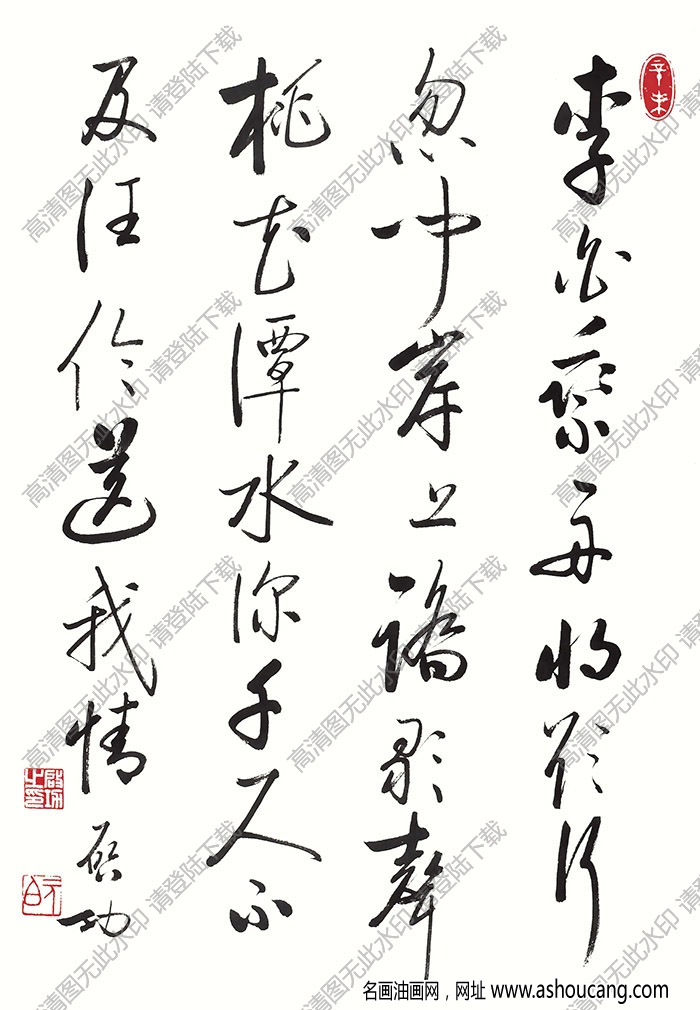 辛未
李白乘舟將欲行
忽聞岸上踏歌聲
桃花潭水深千尺不
及汪倫送我情
啟功
啟功之印
元白
高清图无此水印 请登陆下载
名画油画网，网址 www.ashoucang.com